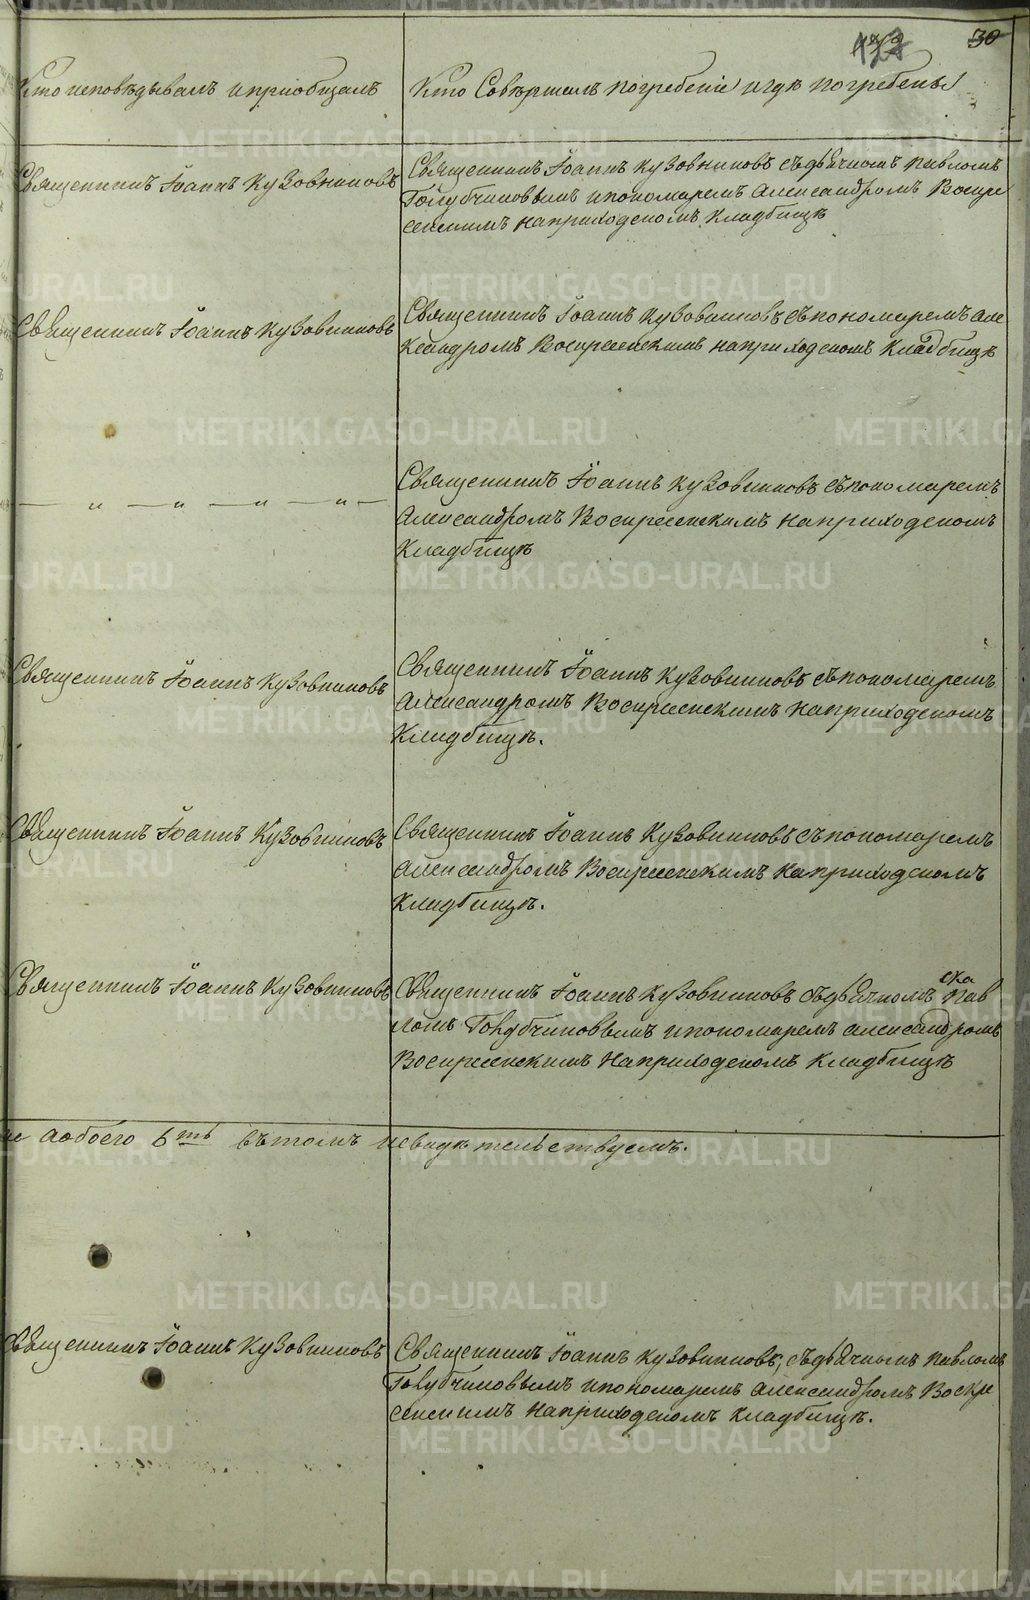 30
Кто исповѣдывалъ и пріобщалъ
Кто Совѣршалъ погребеніе и гдѣ погребены
Священникъ Іоаннъ Кузовниковъ
Священникъ Іоаннъ Кузовниковъ съ дьячкомъ Павломъ
Голубчиковымъ и пономаремъ Александромъ Воскре
сенскимъ на приходскомъ кладбищѣ
Священникъ Іоаннъ Кузовниковъ
Священникъ Іоаннъ Кузовниковъ съ пономаремъ Але
ксандромъ Воскресенскимъ на приходскомъ Кладбищѣ
— „ — „ — „ — „ —
Священникъ Іоаннъ Кузовниковъ съ пономаремъ
Александромъ Воскресенскимъ на приходскомъ
Кладбищѣ
Священникъ Іоаннъ Кузовниковъ
Священникъ Іоаннъ Кузовниковъ съ пономаремъ
Александромъ Воскресенскимъ на приходскомъ
Кладбищѣ.
Священникъ Іоаннъ Кузовниковъ
Священникъ Іоаннъ Кузовниковъ съ пономаремъ
Александромъ Воскресенскимъ на приходскомъ
Кладбищѣ.
Священникъ Іоаннъ Кузовниковъ
Священникъ Іоаннъ Кузовниковъ съ дьячкомъ Пав
ломъ Голубчиковымъ и пономаремъ Александромъ
Воскресенскимъ на приходскомъ Кладбищѣ
а обоего 6ть въ томъ свидѣтельствуемъ.
Священникъ Іоаннъ Кузовниковъ
Священникъ Іоаннъ Кузовниковъ, съ дьячкомъ Павломъ
Голубчиковымъ и пономаремъ Александромъ Воскре
сенскимъ на приходскомъ кладбищѣ.
METRIKI.GASO-URAL.RU